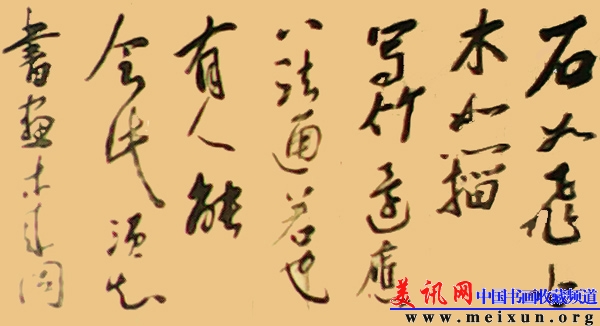 石如飛白
木如籀
写竹還應
八法通若也
有人能
会此須知
書畫本来同
美讯网 中国书画收藏频道
www.meixun.org